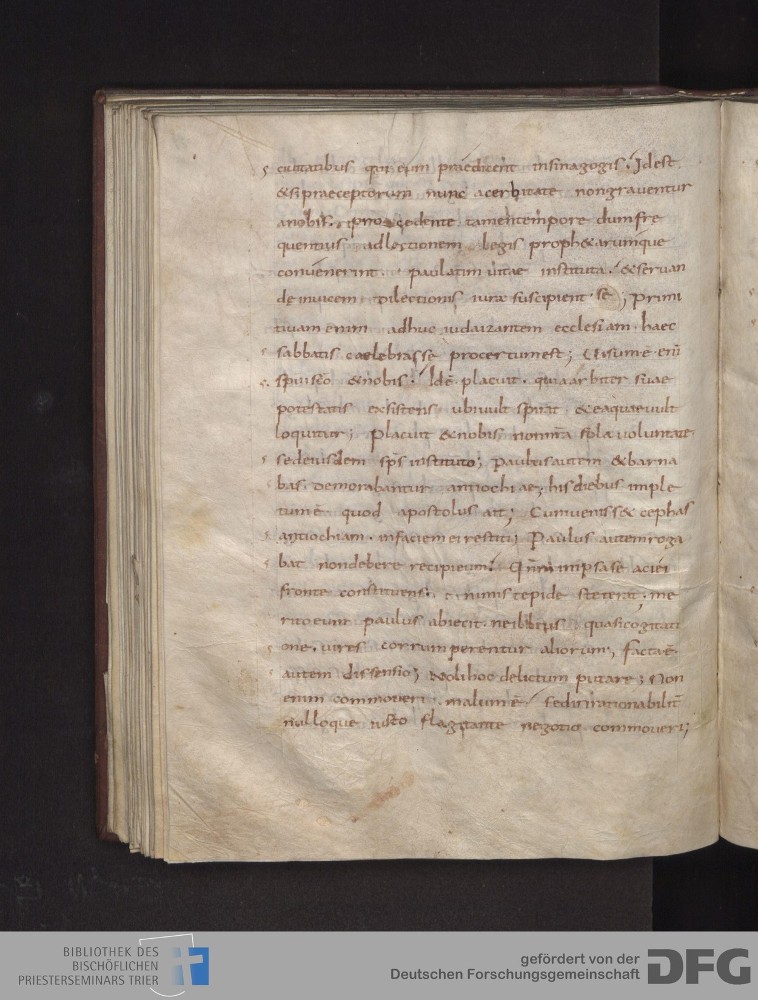 ciuitatibus qui eum praedicent insinagogis. Idest
&sipraeceptorum nunc acerbitate nongrauentur
anobis. procedente tamentempore dumfre
quentius adlectionem legis proph&arumque
conuenerint. paulatim uitae instituta. &seruan
deinuicem dilectionis iura suscipient se; Primi
tiuam enim adhuc iudaizantem ecclesiam haec
sabbatis caelebrasse procertumest; Uisumē enī
spuisco &nobis. Idē placuit. quiaarbiter suae
potestatis exsistens ubiuult spirat &eaquaeuult
loquitur; Placuit &nobis nonnrā sola uoluntate
sedeiusdem sps instituto; Paulusautem &barna
bas. demorabantur antiochiae; hisdiebus imple
tumē quod apostolus ait; Cumueniss& cephas
antiochiam. infaciem ei restiti; Paulus autemroga
bat nondebere recipieum. Qm inipsase aciei
fronte constituens. nimis tepide steterat. me
ritoeum paulus abiecit. neillius quasicogitati
one. uires corrumperentur aliorum; factaē
autem dissensio; Nolihoc delictum putare; Non
enim commoueri. malumē. sedinrationabilit
nulloque iusto flagitante negotio commoueri;
BIBLIOTHEK DES
BISCHÖFLICHEN
PRIESTERSEMINARS TRIER
gefördert von der
Deutschen Forschungsgemeinschaft
DFG